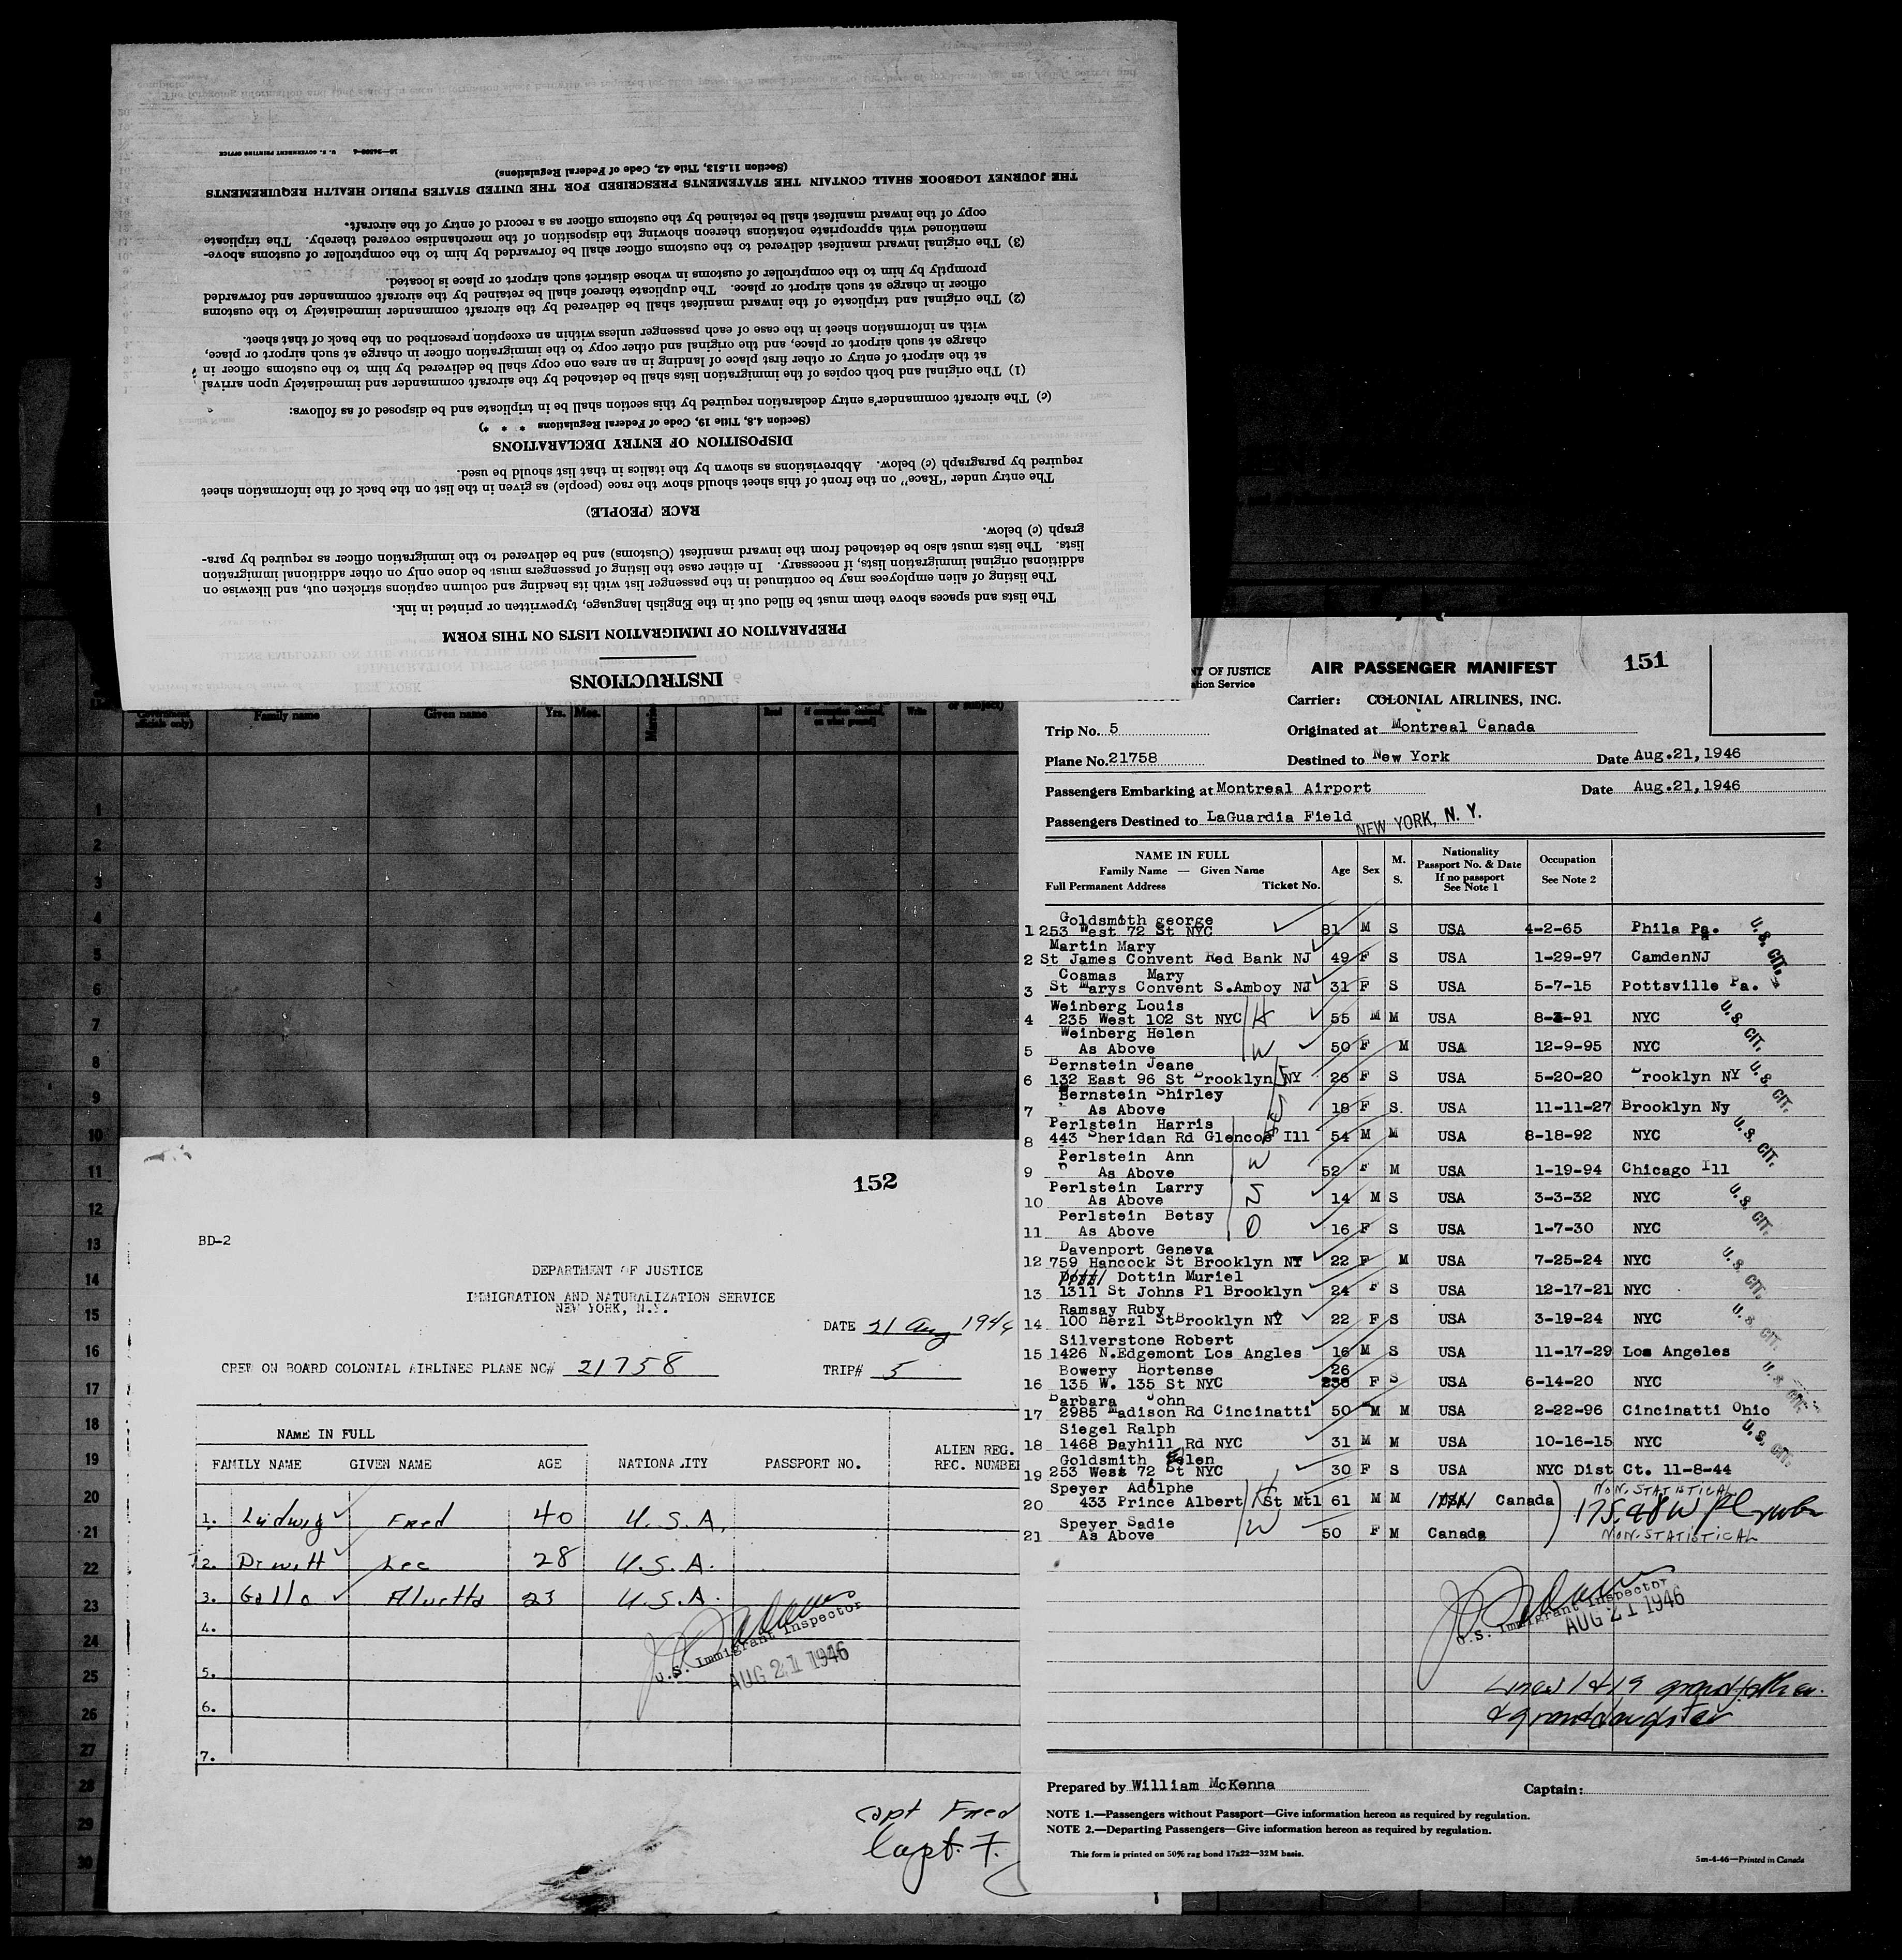 INSTRUCTIONS
PREPARATION OF IMMIGRATION LISTS ON THIS FORM
The lists and spaces above them must be filled out in the English language, typewritten or printed in ink.
The listing of alien employees may be continued in the passenger list with its heading and column captions stricken out, and likewise on
additional original immigration lists, if necessary. In either case the listing of passengers must be done only on other additional immigration
lists. The lists must also be detached from the inward manifest (Customs) and be delivered to the immigration officer as required by para-
graph (c) below.
RACE (PEOPLE)
The entry under "Race" on the front of this sheet should show the race (people) as given in the list on the back of the information sheet
required by paragraph (c) below. Abbreviations as shown by the italics in that list should be used.
DISPOSITION OF ENTRY DECLARATIONS
(Section 4.8, Title 19, Code of Federal Regulations * * *)
(c) The aircraft commander's entry declaration required by this section shall be in triplicate and be disposed of as follows:
(1) The original and both copies of the immigration lists shall be detached by the aircraft commander and immediately upon arrival
at the airport of entry or other first place of landing in an area one copy shall be delivered by him to the customs officer in
charge at such airport or place, and the original and other copy to the immigration officer in charge at such airport or place,
with an information sheet in the case of each passenger unless within an exception prescribed on the back of that sheet.
(2) The original and triplicate of the inward manifest shall be delivered by the aircraft commander immediately to the customs
officer in charge at such airport or place. The duplicate thereof shall be retained by the aircraft commander and forwarded
promptly by him to the comptroller of customs in whose district such airport or place is located.
(3) The original inward manifest delivered to the customs officer shall be forwarded by him to the comptroller of customs above-
mentioned with appropriate notations thereon showing the disposition of the merchandise covered thereby. The triplicate
copy of the inward manifest shall be retained by the customs officer as a record of entry of the aircraft.
THE JOURNEY LOGBOOK SHALL CONTAIN THE STATEMENTS PRESCRIBED FOR THE UNITED STATES PUBLIC HEALTH REQUIREMENTS
(Section 11.513, Title 42, Code of Federal Regulations)
U. S. GOVERNMENT PRINTING OFFICE
Family name Given name Yrs. Mos. Read Write
1
2
3
4
5
6
7
8
9
10
11
12
13
14
15
16
17
18
19
20
21
22
23
24
25
26
27
28
29
30
OF JUSTICE
Service
AIR PASSENGER MANIFEST
151
Carrier: COLONIAL AIRLINES, INC.
Trip No. 5 Originated at Montreal Canada
Plane No. 21758 Destined to New York Date Aug.21,1946
Passengers Embarking at Montreal Airport Date Aug.21,1946
Passengers Destined to LaGuardia Field NEW YORK, N. Y.
NAME IN FULL
Family Name — Given Name
Full Permanent Address Ticket No.
Age Sex M. S.
Nationality
Passport No. & Date
If no passport
See Note 1
Occupation
See Note 2
Goldsmith george
1 253 West 72 St NYC 81 M S USA 4-2-65 Phila Pa.
U.S. CIT.
Martin Mary
2 St James Convent Red Bank NJ 49 F S USA 1-29-97 CamdenNJ
Cosmas Mary
3 St Marys Convent S.Amboy NJ 31 F S USA 5-7-15 Pottsville Pa.
Weinberg Louis
4 235 West 102 St NYC H 55 M M USA 8-3-91 NYC
U.S. CIT.
Weinberg Helen
5 As Above W 50 F M USA 12-9-95 NYC
Bernstein Jeane
6 132 East 96 St Brooklyn NY 26 F S USA 5-20-20 Brooklyn NY
U.S. CIT.
Bernstein Shirley
7 As Above 18 F S. USA 11-11-27 Brooklyn Ny
Perlstein Harris
8 443 Sheridan Rd Glencoe Ill 54 M M USA 8-18-92 NYC
U.S. CIT.
Perlstein Ann
9 As Above W 52 F M USA 1-19-94 Chicago Ill
Perlstein Larry
10 As Above S 14 M S USA 3-3-32 NYC
U.S. CIT.
Perlstein Betsy
11 As Above D 16 F S USA 1-7-30 NYC
Davenport Geneva
12 759 Hancock St Brooklyn NY 22 F M USA 7-25-24 NYC
U.S. CIT.
Dottin Muriel
13 1311 St Johns Pl Brooklyn 24 F S USA 12-17-21 NYC
Ramsay Ruby
14 100 Herzl St Brooklyn NY 22 F S USA 3-19-24 NYC
U.S. CIT.
Silverstone Robert
15 1426 N.Edgemont Los Angles 16 M S USA 11-17-29 Los Angeles
Bowery Hortense 26
16 135 W. 135 St NYC F S USA 6-14-20 NYC
U.S. CIT.
Barbara John
17 2985 Madison Rd Cincinatti 50 M M USA 2-22-96 Cincinatti Ohio
Siegel Ralph
18 1468 Dayhill Rd NYC 31 M M USA 10-16-15 NYC
U.S. CIT.
Goldsmith Helen
19 253 West 72 St NYC 30 F S USA NYC Dist Ct. 11-8-44
Speyer Adolphe NON.STATISTICAL
20 433 Prince Albert St Mtl H 61 M M USA Canada
Speyer Sadie
21 As Above W 50 F M Canada NON.STATISTICAL
U.S. Immigrant Inspector
AUG 21 1946
Lines 1 & 19 grandfather
& granddaughter
Prepared by William McKenna Captain:
NOTE 1.—Passengers without Passport—Give information hereon as required by regulation.
NOTE 2.—Departing Passengers—Give information hereon as required by regulation.
This form is printed on 50% rag bond 17x22—32M basis.
5m-4-46—Printed in Canada
152
BD-2
DEPARTMENT OF JUSTICE
IMMIGRATION AND NATURALIZATION SERVICE
NEW YORK, N.Y.
DATE 21 Aug 1946
CREW ON BOARD COLONIAL AIRLINES PLANE NO# 21758 TRIP# 5
NAME IN FULL
FAMILY NAME GIVEN NAME AGE NATIONALITY PASSPORT NO. ALIEN REG.
REC. NUMBER
1. Ludwig Fred 40 U.S.A.
2. Dewitt Lee 28 U.S.A.
3. Gallo Aluetta 23 U.S.A.
4.
5.
6.
7.
U.S. Immigrant Inspector
AUG 21 1946
Capt Fred
Capt. F.